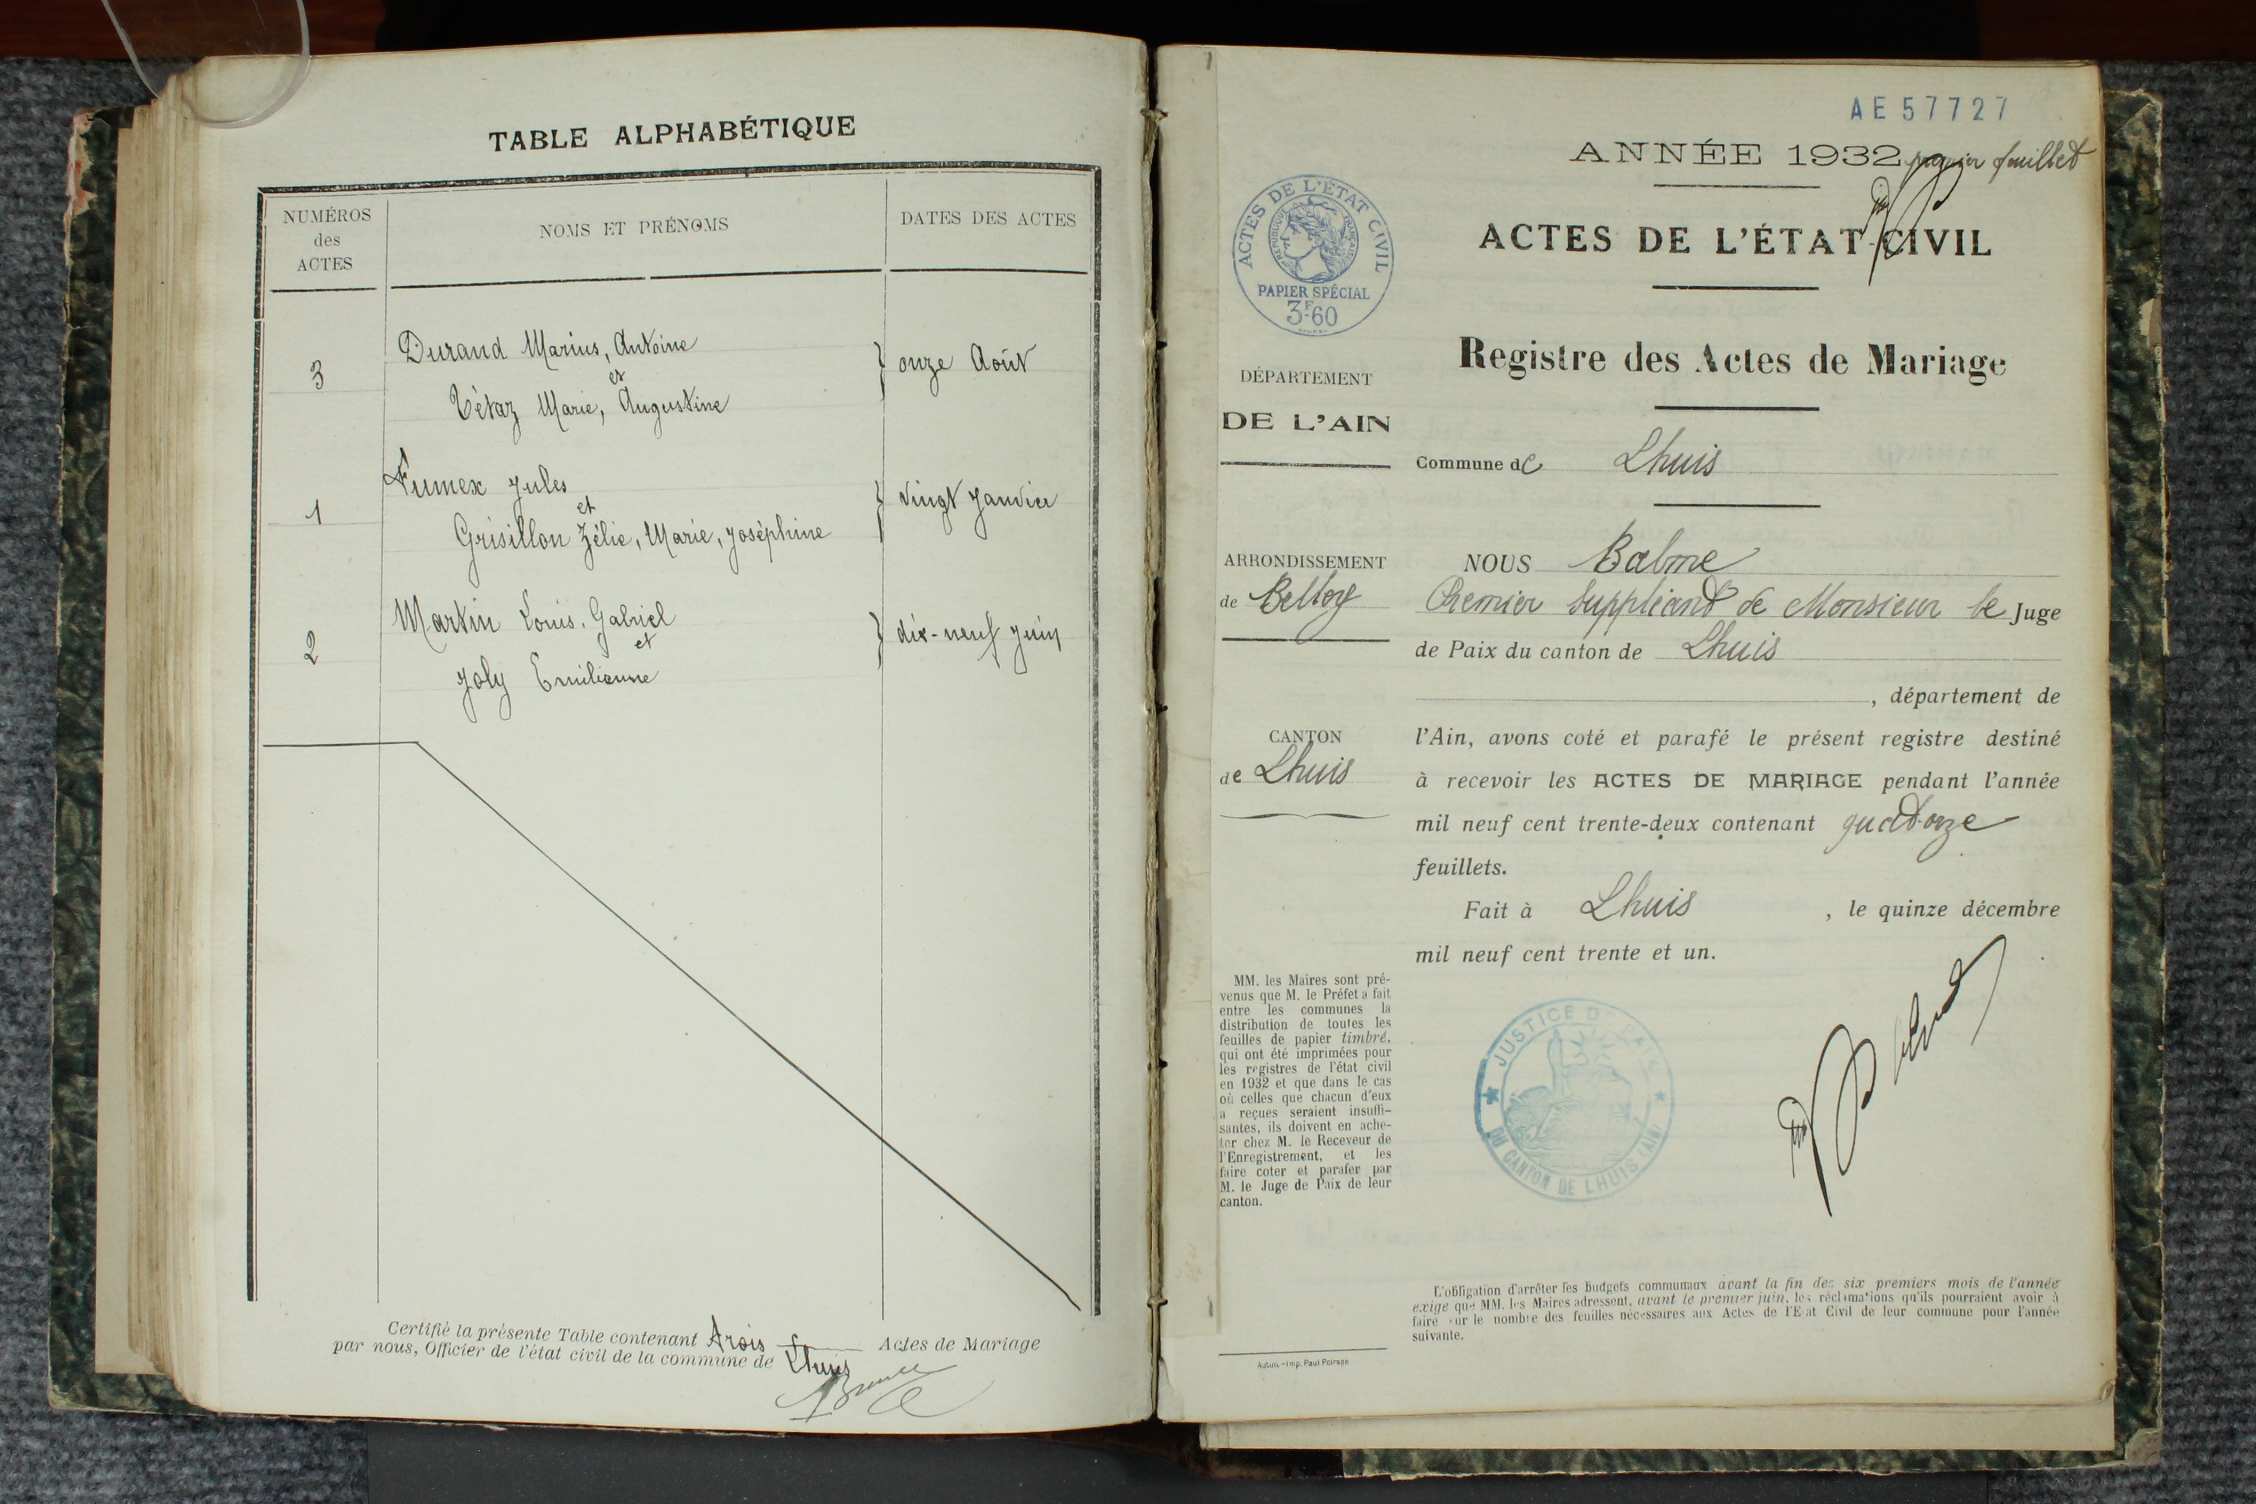 TABLE ALPHABÉTIQUE
NUMÉROS
des
ACTES
NOMS ET PRÉNOMS
DATES DES ACTES
3
Durand Marius, Antoine
et
Tétaz Marie, Augustine
onze Août
1
Fumex Jules
et
Grisillon Zélie, Marie, Joséphine
vingt Janvier
2
Martin Louis, Gabriel
et
Joly Emilienne
dix-neuf Juin
Certifié la présente Table contenant trois Actes de Mariage
par nous, Officier de l'état civil de la commune de Lhuis
AE 57727
ANNÉE 1932 premier feuillet
ACTES DE L'ÉTAT CIVIL
RÉPUBLIQUE FRANÇAISE
PAPIER SPÉCIAL
3F60
ACTES DE L'ÉTAT-CIVIL
Registre des Actes de Mariage
DÉPARTEMENT
DE L'AIN
Commune de Lhuis
ARRONDISSEMENT
de Belley
CANTON
de Lhuis
NOUS Balme
Premier Suppléant de Monsieur le Juge
de Paix du canton de Lhuis
, département de
l'Ain, avons coté et parafé le présent registre destiné
à recevoir les ACTES DE MARIAGE pendant l'année
mil neuf cent trente-deux contenant quatorze
feuillets.
Fait à Lhuis , le quinze décembre
mil neuf cent trente et un.
MM. les Maires sont pré-
venus que M. le Préfet a fait
entre les communes la
distribution de toutes les
feuilles de papier timbré,
qui ont été imprimées pour
les registres de l'état civil
en 1932 et que dans le cas
où celles que chacun d'eux
a reçues seraient insuffi-
santes, ils doivent en ache-
ter chez M. le Receveur de
l'Enregistrement, et les
faire coter et parafer par
M. le Juge de Paix de leur
canton.
JUSTICE DE PAIX
DU CANTON DE LHUIS (AIN)
L'obligation d'arrêter les budgets communaux avant la fin des six premiers mois de l'année
exige que MM. les Maires adressent, avant le premier juin, les réclamations qu'ils pourraient avoir à
faire sur le nombre des feuilles nécessaires aux Actes de l'Etat Civil de leur commune pour l'année
suivante.
Autun. - Imp. Paul Poirson